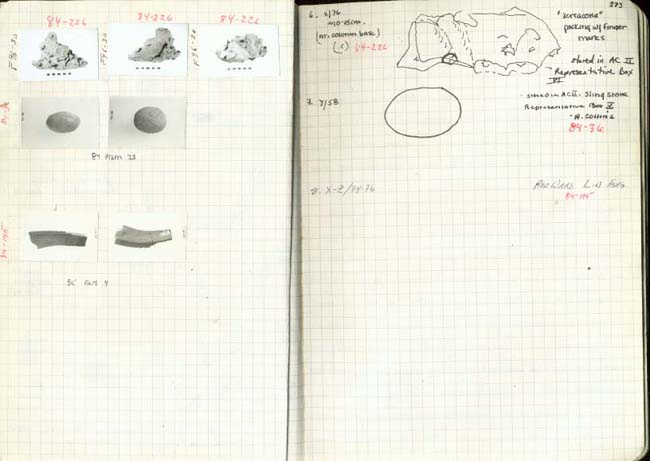 84-226
84-226
84-226
F86-30
F86-30
84 FILM 25
84-145
85 FILM 4
6. X/76
MO.15cm.
(nr. column base)
(c) 84-226
"terracotta"
packing w/ finger
marks
stored in AC II
Representative Box
VI
7. Y/58
stored in AC II. Sling Stone
Representative Box V
84-36
8. X-Z/74-76
84-145